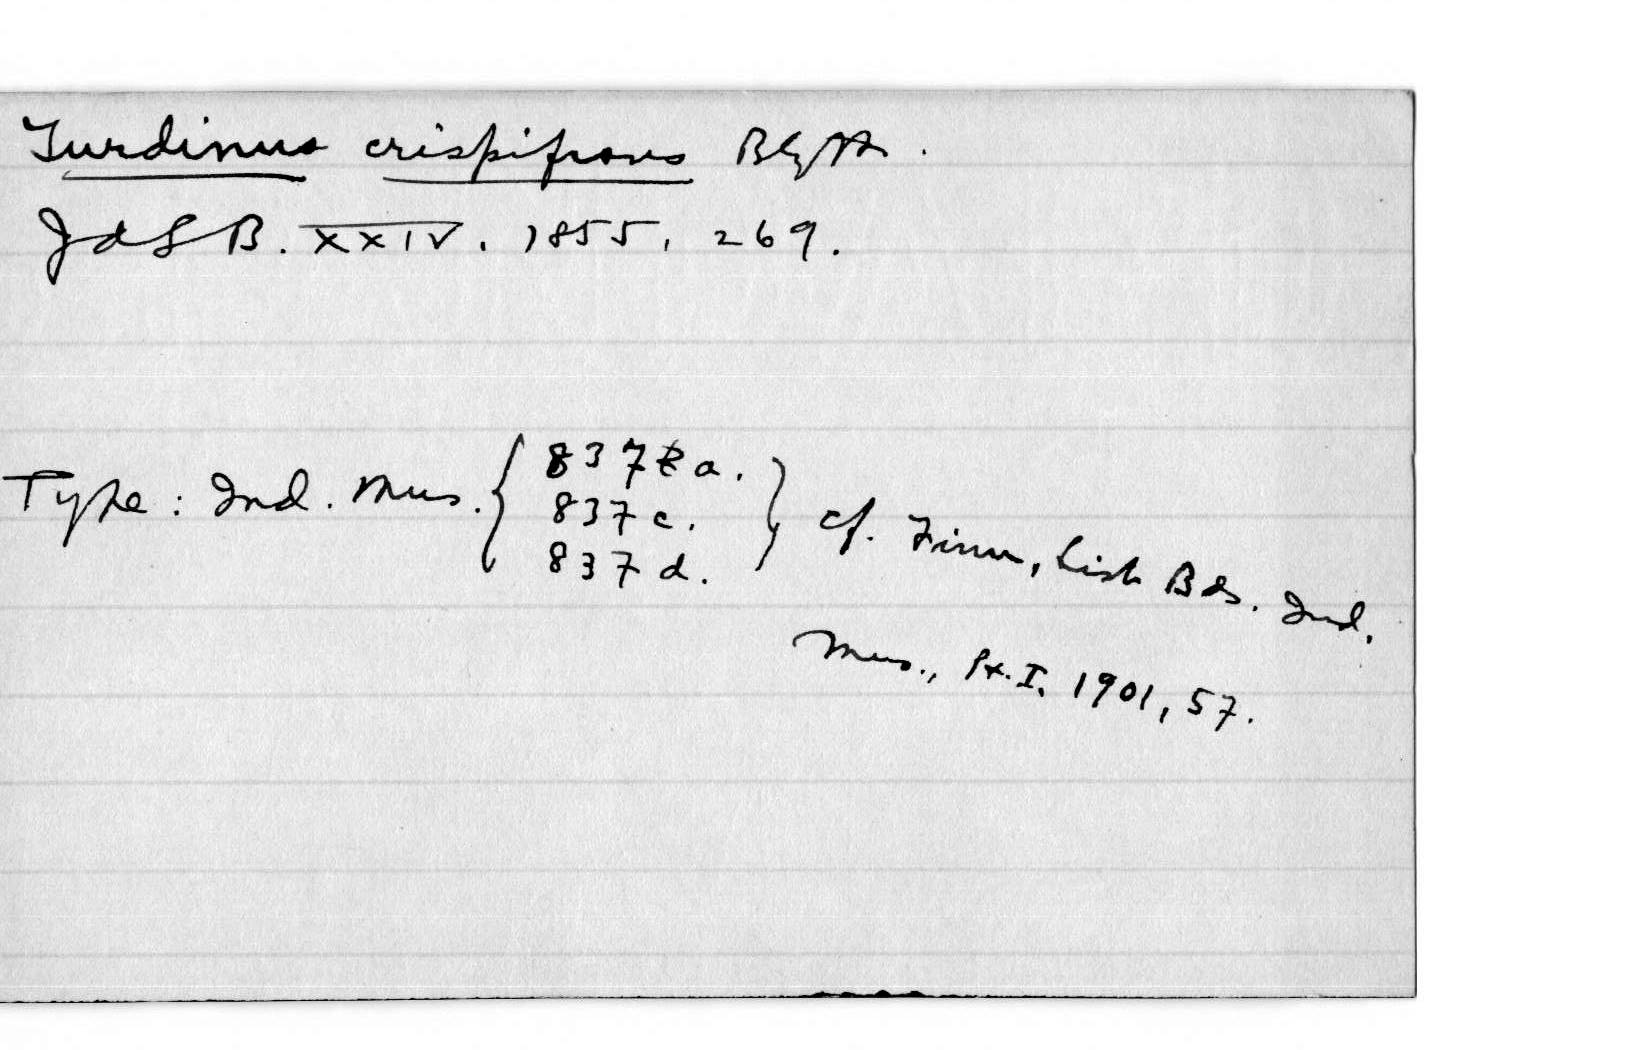 Turdinus crispifrons Blyth.
JASB. XXIV. 1855, 269.
837 a.
Type: Ind. Mus. { 837 c. } cf. Finn, List Bds. Ind.
837 d.
Mus., Pt. I. 1901, 57.